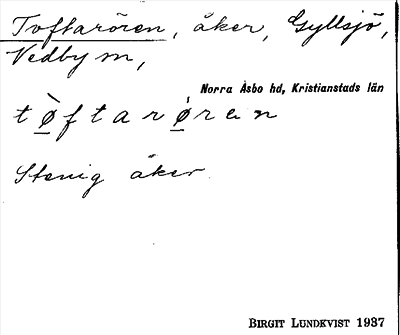 Toftarören, åker, Gyllsjö,
Vedby m,
Norra Åsbo hd, Kristianstads län
t ø̀ f t a r ø̀ r e n
Stenig åker
BIRGIT LUNDKVIST 1937